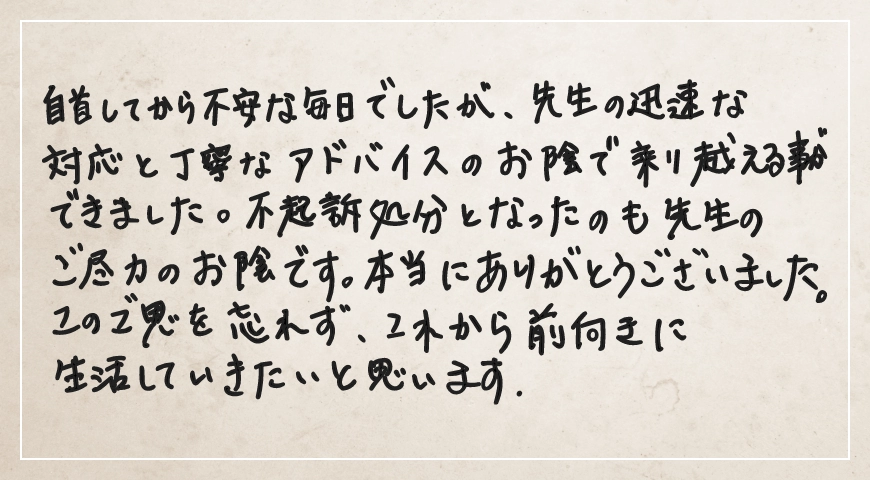 自首してから不安な毎日でしたが、先生の迅速な
対応と丁寧なアドバイスのお陰で乗り越える事が
できました。不起訴処分となったのも先生の
ご尽力のお陰です。本当にありがとうございました。
このご恩を忘れず、これから前向きに
生活していきたいと思います.